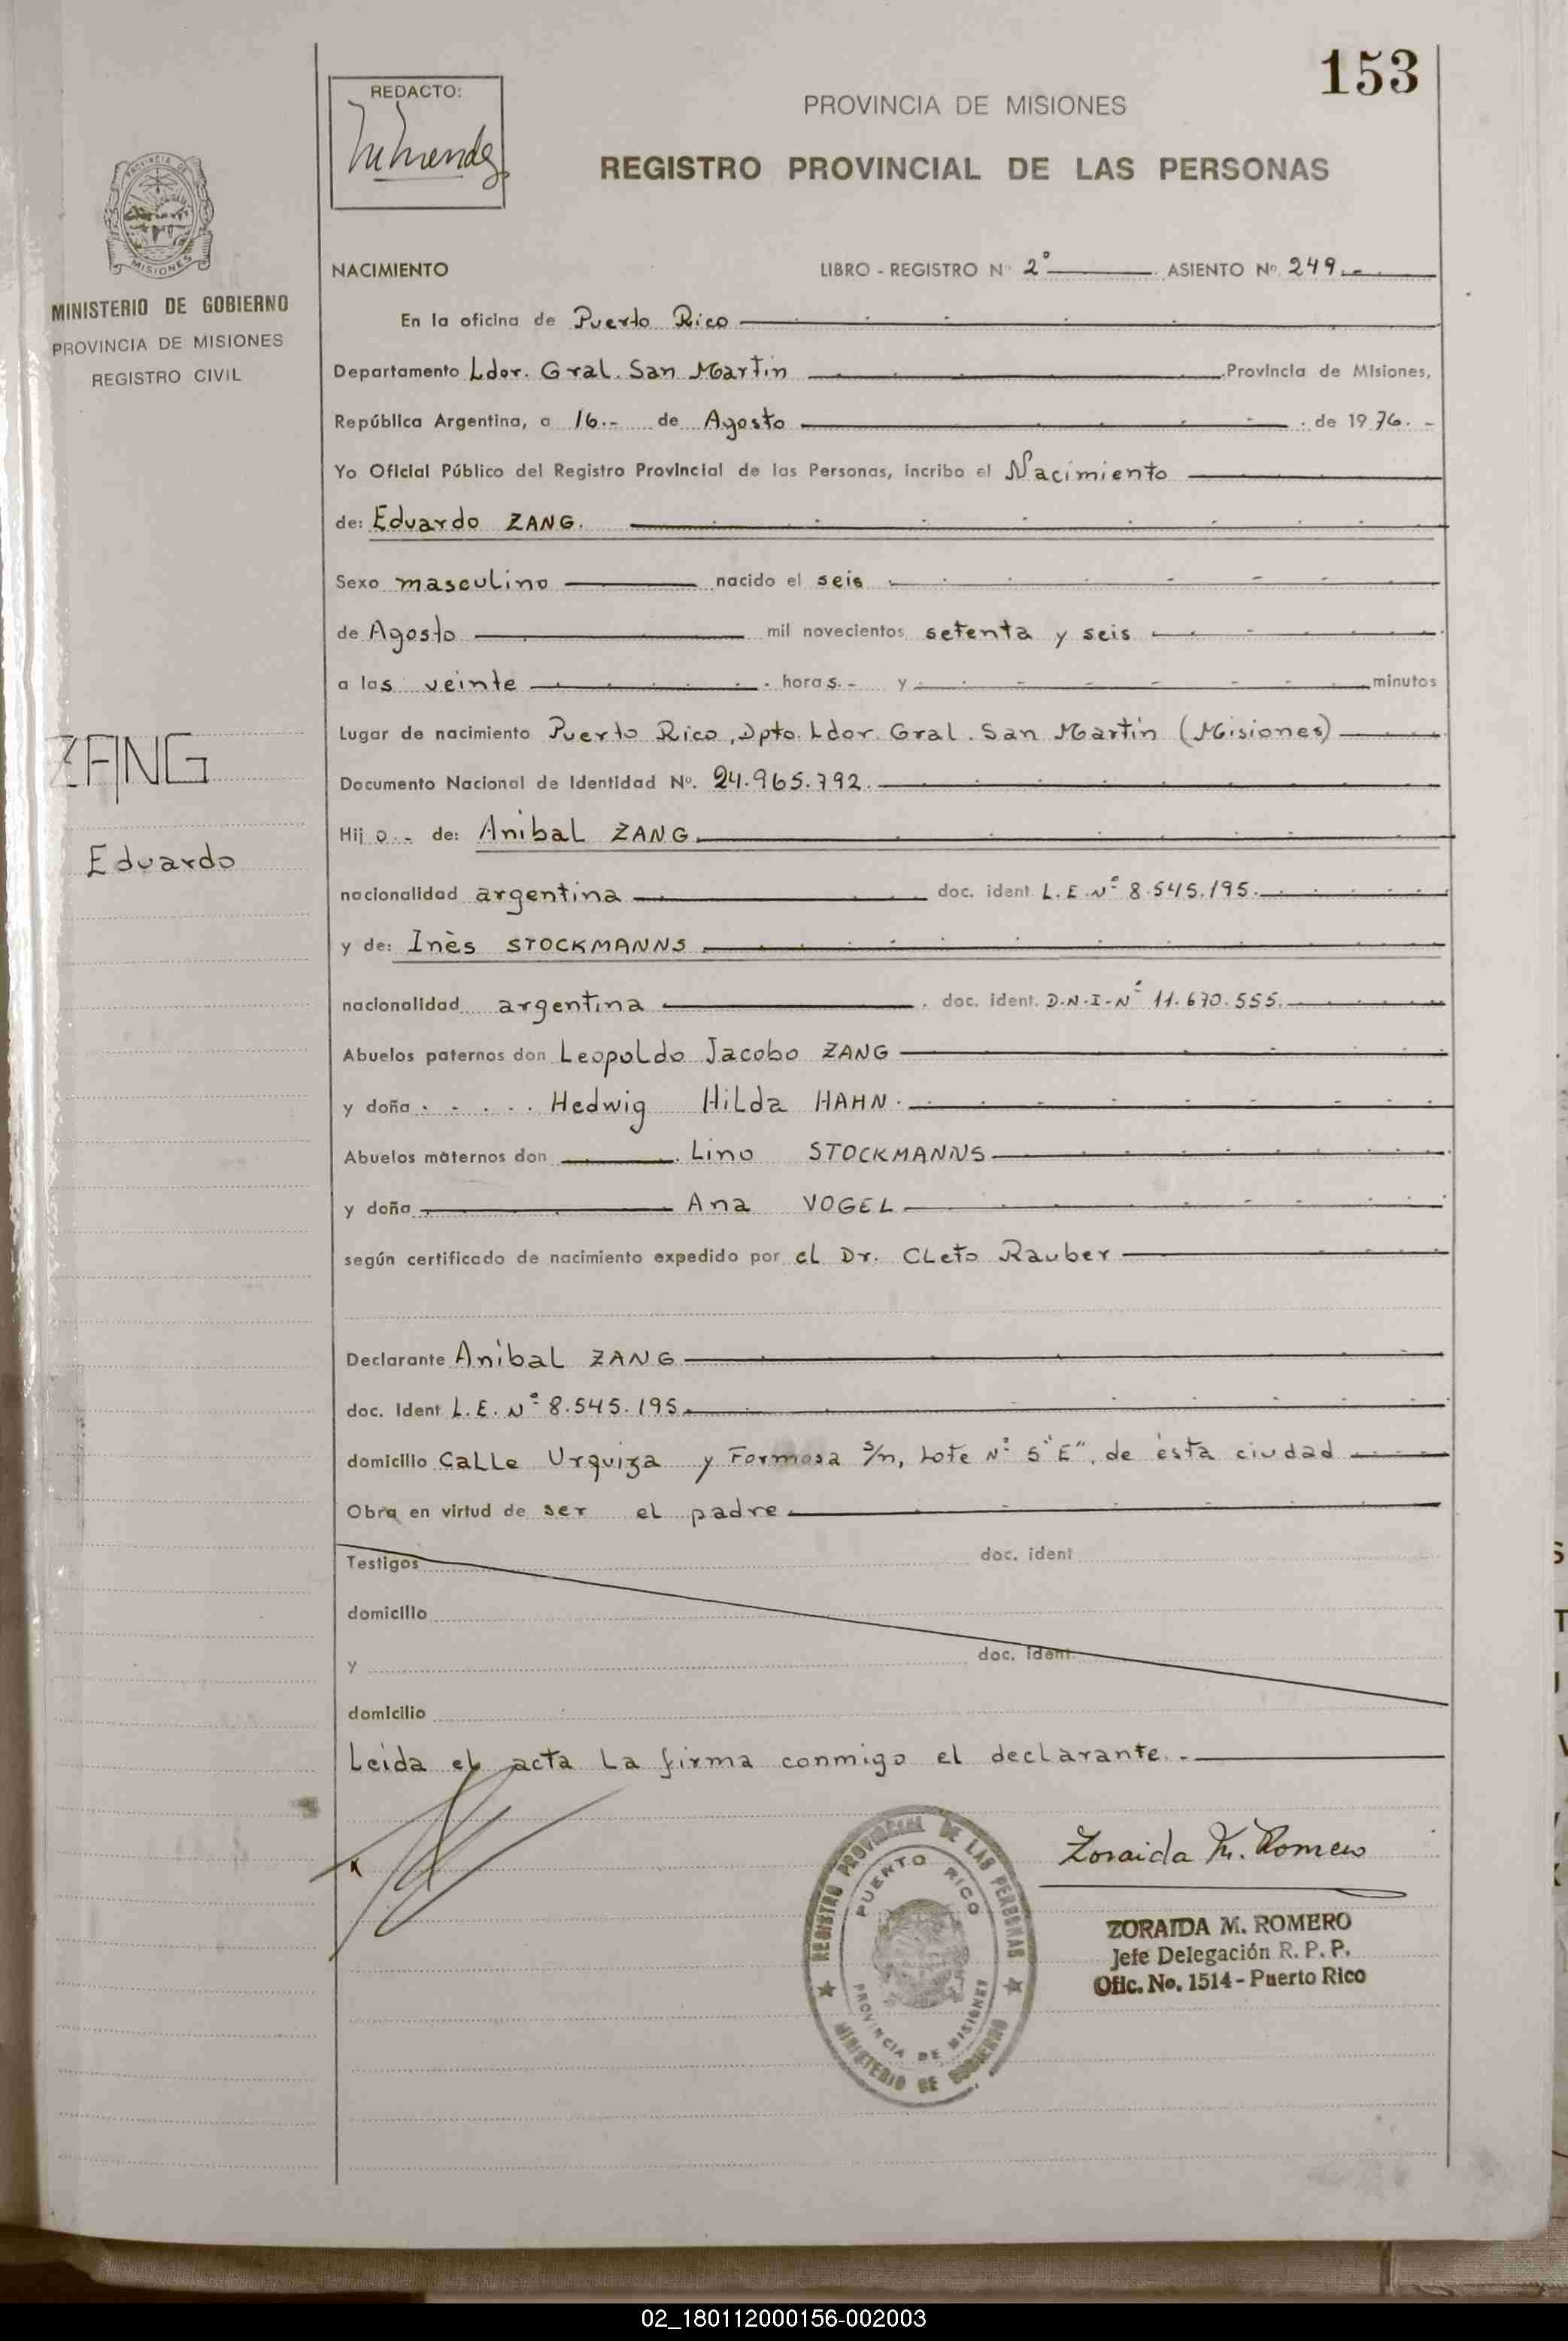 153
REDACTO:
PROVINCIA DE MISIONES
REGISTRO PROVINCIAL DE LAS PERSONAS
PROVINCIA DE
MISIONES
MINISTERIO DE GOBIERNO
PROVINCIA DE MISIONES
REGISTRO CIVIL
NACIMIENTO LIBRO - REGISTRO Nº 2º ASIENTO Nº 249.-
En la oficina de Puerto Rico
Departamento Ldor. Gral. San Martin Provincia de Misiones,
República Argentina, a 16.- de Agosto de 1976.-
Yo Oficial Público del Registro Provincial de las Personas, incribo el Nacimiento
de: Eduardo ZANG.
Sexo masculino nacido el seis
de Agosto mil novecientos setenta y seis
a las veinte horas.- y minutos
Lugar de nacimiento Puerto Rico, Dpto. Ldor. Gral. San Martin (Misiones)
ZANG
Eduardo
Documento Nacional de Identidad Nº. 24.965.792.
Hijo.- de: Anibal ZANG.
nacionalidad argentina doc. ident. L.E.Nº 8.545.195.
y de: Inès STOCKMANNS
nacionalidad argentina doc. ident. D.N.I.Nº 11.670.555.
Abuelos paternos don Leopoldo Jacobo ZANG
y doña Hedwig Hilda HAHN.
Abuelos maternos don Lino STOCKMANNS
y doña Ana VOGEL
según certificado de nacimiento expedido por el Dr. Cleto Rauber
Declarante Anibal ZANG
doc. Ident L.E. Nº 8.545.195.
domicilio Calle Urquiza y Formosa s/n, Lote Nº 5"E", de ésta ciudad
Obra en virtud de ser el padre
Testigos doc. ident
domicilio
y doc. ident.
domicilio
Leida el acta la firma conmigo el declarante.-
Zoraida M. Romero
REGISTRO PROVINCIAL DE LAS PERSONAS
PUERTO RICO
PROVINCIA DE MISIONES
MINISTERIO DE GOBIERNO
ZORAIDA M. ROMERO
Jefe Delegación R. P. P.
Ofic. No. 1514 - Puerto Rico
02_180112000156-002003